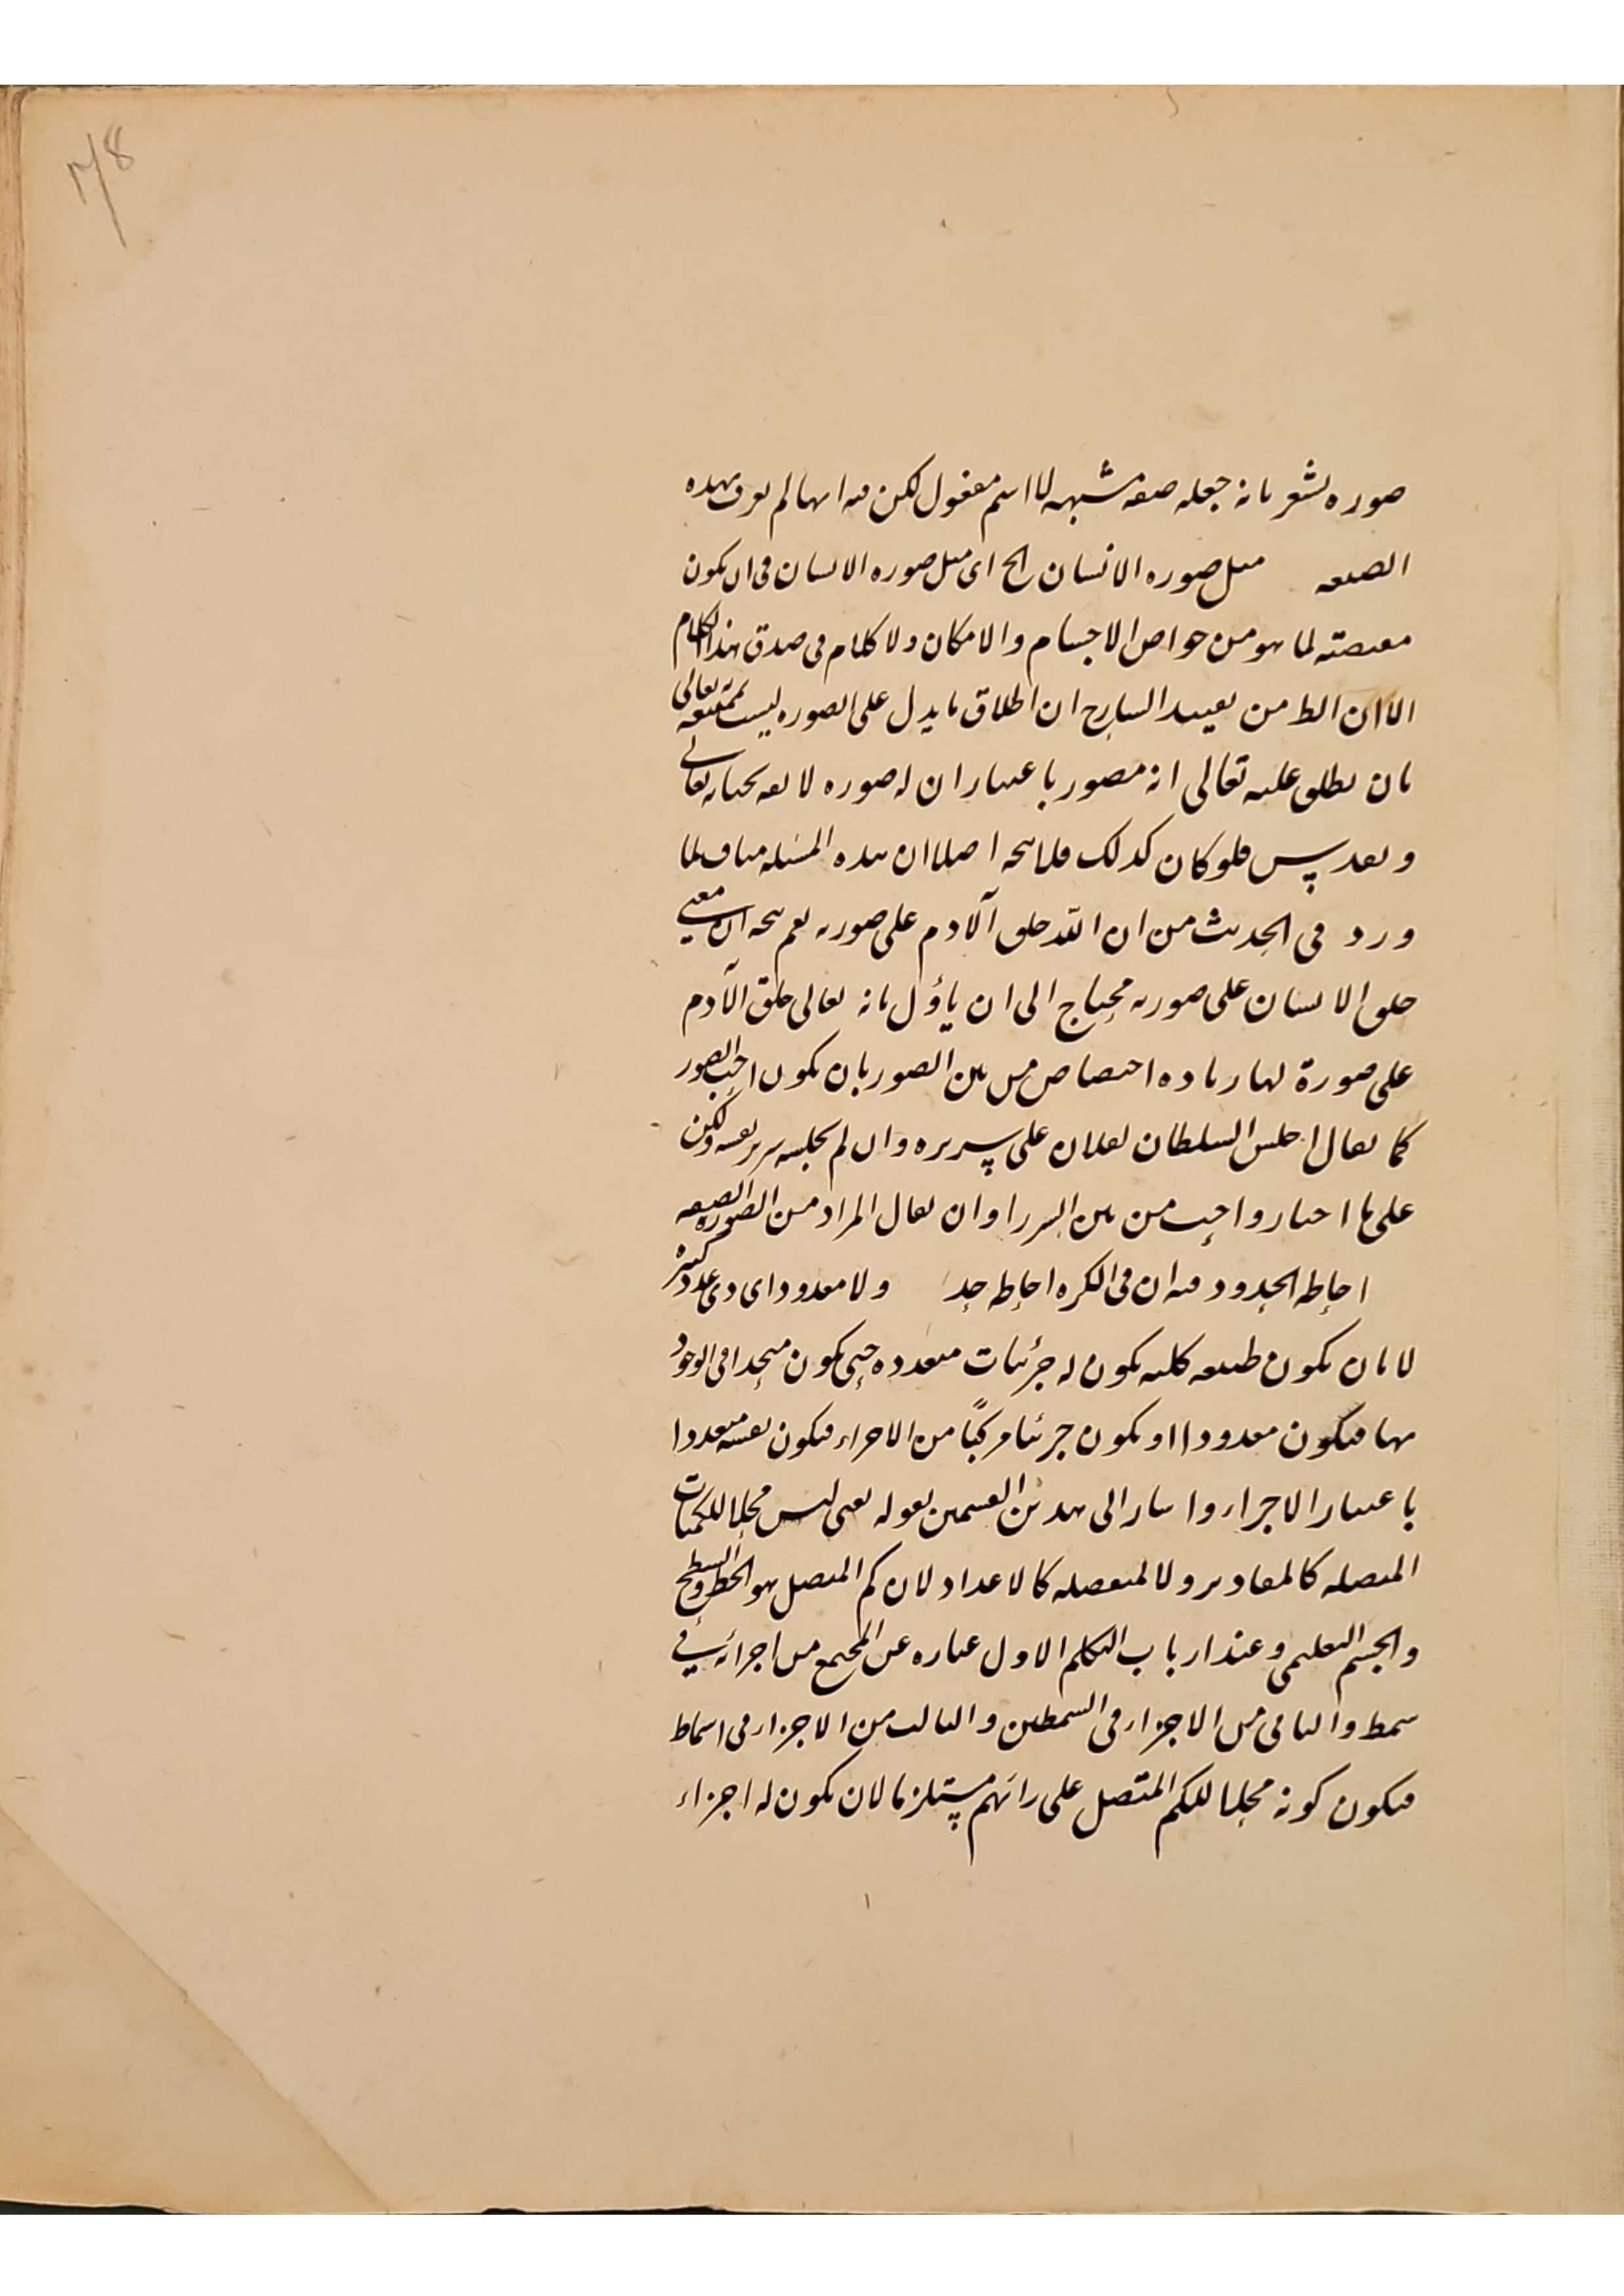 ۲۱۸
صوره يشعر بانه جعله صفه مشبهه لا اسم مفعول لكن فيه انها لم يعرف بهذه
الصيغه مثل صوره الانسان الخ اى مثل صوره الانسان فى ان يكون
مقتضيه لما هو من خواص الاجسام والامكان ولا كلام فى صدق هذا الكلام
الا ان الظ من تقييد الشارح ان اطلاق ما يدل على الصوره ليست بممتنعه تعالى
بان يطلق عليه تعالى انه مصور باعتبار ان له صوره لايقه بجنابه تعالى
وبعد پس فلو كان كذلك فلا يتجه اصلا ان هذه المسئله مناف لما
ورد فى الحديث من ان الله خلق آلادم على صورته نعم يتجه ان معنى
خلق الانسان على صورته محتاج الى ان ياؤل بانه تعالى خلق الآدم
على صورة لها زياده اختصاص من بين الصور بان يكون احب الصور
كما يقال اجلس السلطان لفلان على سريره وان لم يجلسه سرير نفسه ولكن
على ما اختار واحب من بين السرر او ان يقال المراد من الصوره الصفه
احاطه الحدود فيه ان فى الكره احاطه حد ولا معدود اى ذى عدد كثير
لا بان يكون طبيعه كليه يكون له جزئيات متعدده حتى يكون متحدا فى الوجود
بها فيكون معدودا او يكون جزئيا مركبًا من الاجزاء فيكون نفسه متعددا
باعتبار الاجزاء واشار الى هذين القسمين بقوله يعنى ليس محلا للكميات
المتصله كالمقادير ولا المنفصله كالاعداد لان كم المتصل هو الخط والسطح
والجسم التعليمى وعند ارباب التكلم الاول عباره عن المجتمع من اجزائه فى
سمط والثانى من الاجزاء فى السمطين والثالث من الاجزاء فى اسماط
فيكون كونه محلا للكم المتصل على رائهم مستلزما لان يكون له اجزاء